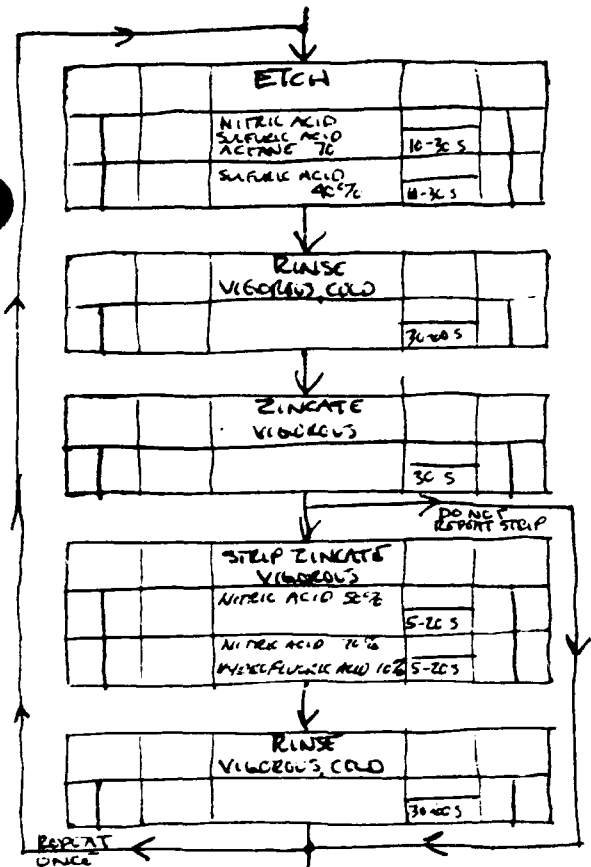 ETCH
NITRIC ACID
SULFURIC ACID
10-30 S
SULFURIC ACID
40%
10-30 S
RINSE
VIGOROUS, COLD
30-60 S
ZINCATE
VIGOROUS
30 S
DO NOT
REPEAT STRIP
STRIP ZINCATE
VIGOROUS
NITRIC ACID 50%
5-20 S
NITRIC ACID
HYDROFLUORIC ACID 10% 5-20 S
RINSE
VIGOROUS, COLD
30-60 S
REPEAT
ONCE